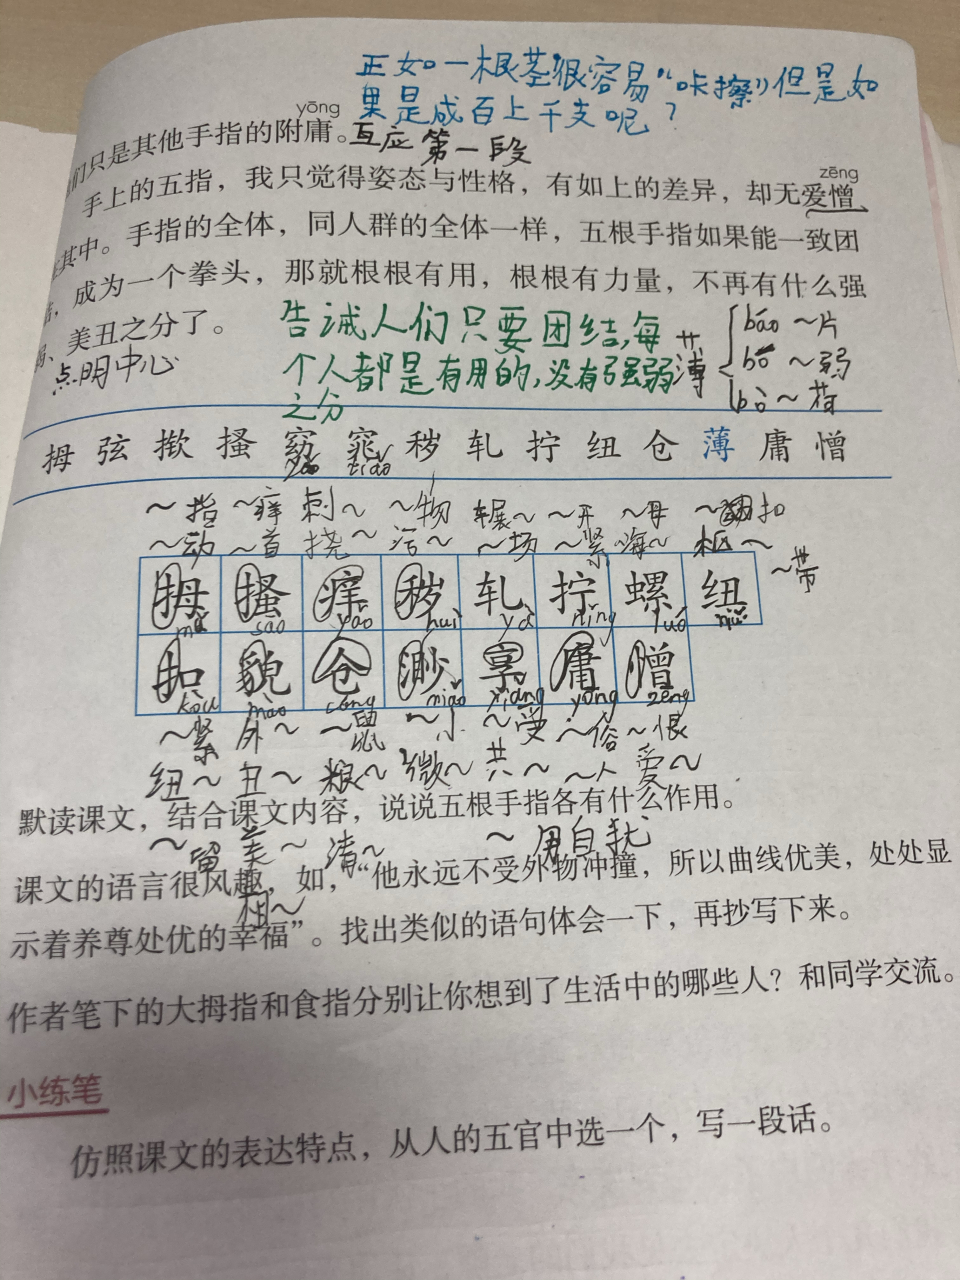 正如一根茎很容易“咔擦”但是如
果是成百上千支呢？
yōng
们只是其他手指的附庸。互应第一段
zēng
手上的五指，我只觉得姿态与性格，有如上的差异，却无爱憎
其中。手指的全体，同人群的全体一样，五根手指如果能一致团
，成为一个拳头，那就根根有用，根根有力量，不再有什么强
、美丑之分了。
点明中心
告诫人们只要团结，每
个人都是有用的，没有强弱
之分
薄
báo ～片
bó ～弱
bò ～荷
拇 弦 揿 搔 窈 窕 秽 轧 拧 纽 仓 薄 庸 憎
yǎo tiǎo
～指 ～痒 刺～ ～物 辗～ ～开 ～母 ～扣
～动 ～首 挠～ 污～ ～场 ～紧 海～ 枢～ ～带
拇 搔 痒 秽 轧 拧 螺 纽
mǔ sāo yǎng huì yà nǐng luó niǔ
扣 貌 仓 渺 享 庸 憎
kòu mào cāng miǎo xiǎng yōng zēng
～紧 外～ ～鼠 ～小 ～受 ～俗 ～恨
纽～ 丑～ 粮～ 微～ 共～ ～人 爱～
默读课文，结合课文内容，说说五根手指各有什么作用。
～留 美～ 清～ ～用自扰
课文的语言很风趣，如，“他永远不受外物冲撞，所以曲线优美，处处显
相～
示着养尊处优的幸福”。找出类似的语句体会一下，再抄写下来。
作者笔下的大拇指和食指分别让你想到了生活中的哪些人？和同学交流。
小练笔
仿照课文的表达特点，从人的五官中选一个，写一段话。